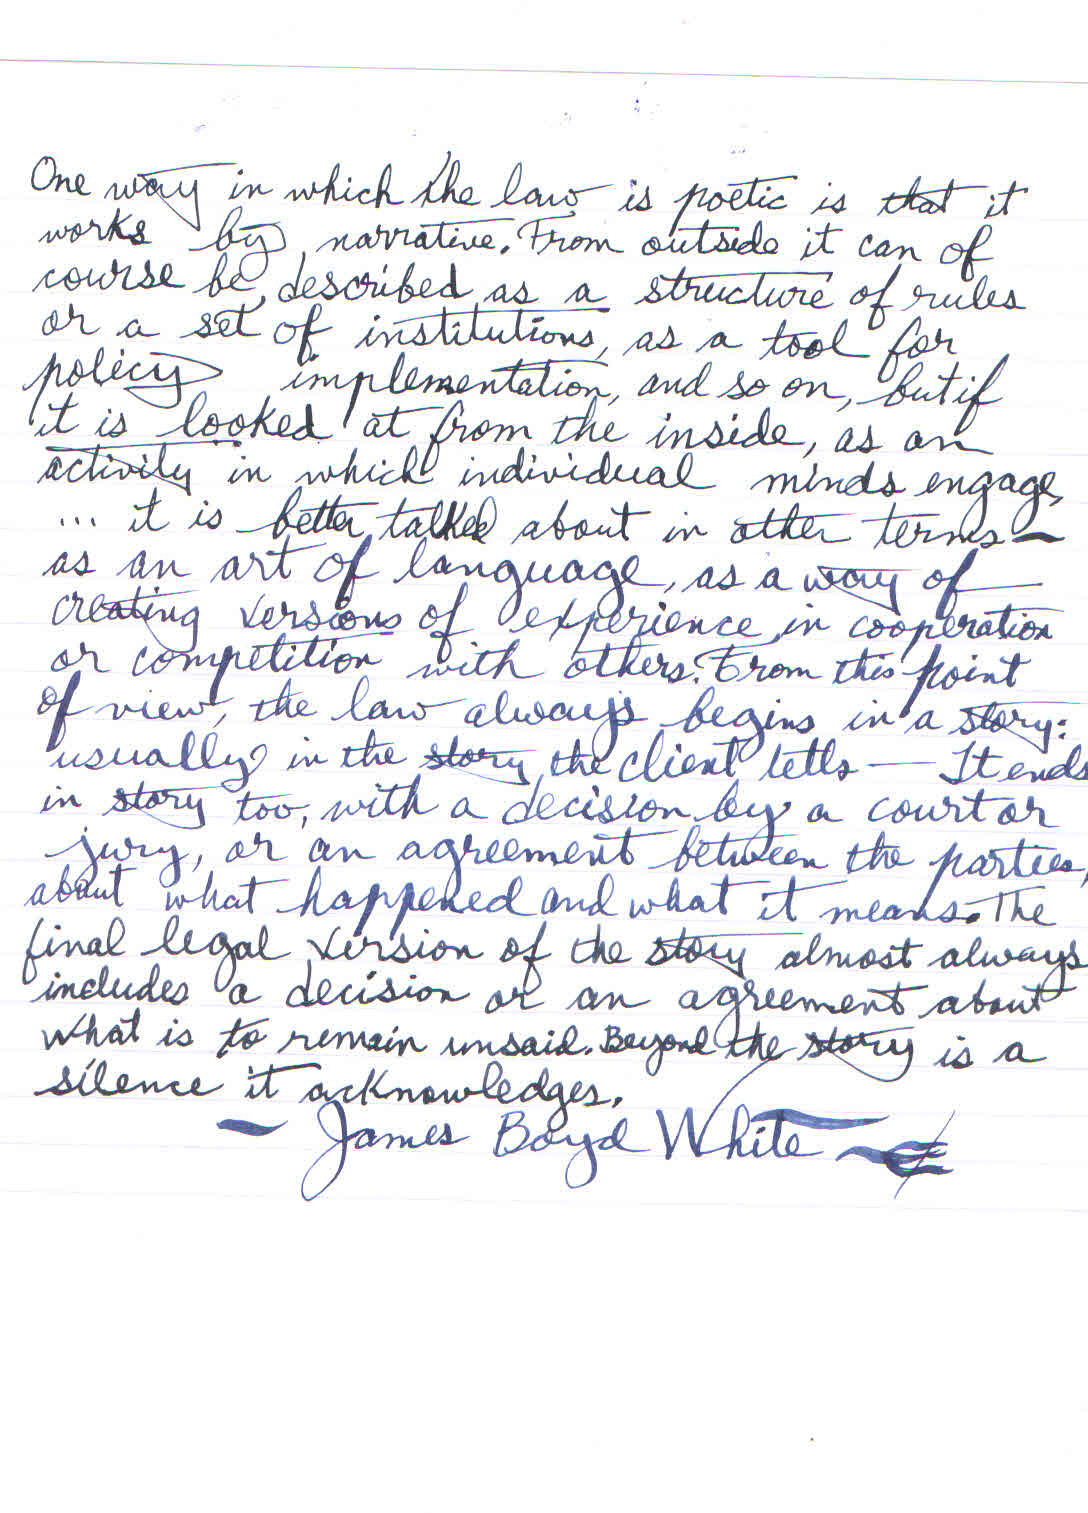 One way in which the law is poetic is that it
works by narrative. From outside it can of
course be described as a structure of rules
or a set of institutions, as a tool for
policy implementation, and so on, but if
it is looked at from the inside, as an
activity in which individual minds engage,
... it is better talked about in other terms —
as an art of language, as a way of
creating versions of experience in cooperation
or competition with others. From this point
of view, the law always begins in a story:
usually in the story the client tells — It ends
in story too, with a decision by a court or
jury, or an agreement between the parties,
about what happened and what it means. The
final legal version of the story almost always
includes a decision or an agreement about
what is to remain unsaid. Beyond the story is a
silence it acknowledges.
~ James Boyd White ~